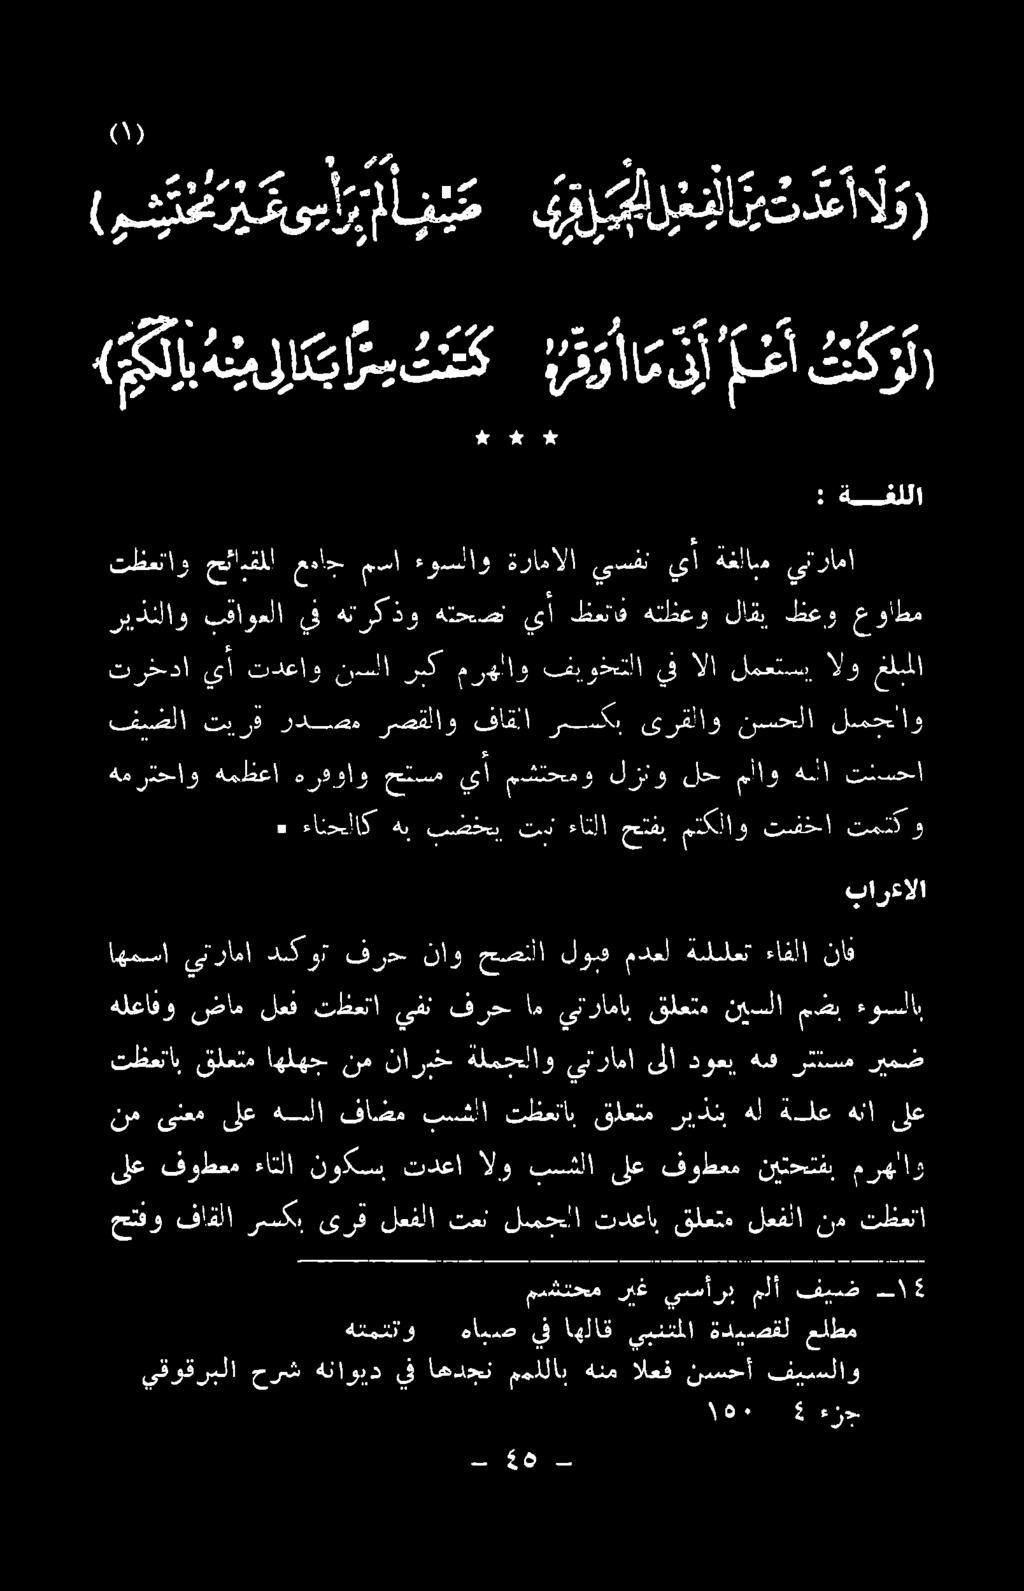 (١)
(وَلَا أَعَدَّتْ مِنَ الْفِعْلِ الْجَمِيلِ قِرَى ضَيْفٍ أَلَمَّ بِرَأْسِي غَيْرَ مُحْتَشِمِ)
(لَوْ كُنْتُ أَعْلَمُ أَنِّي مَا أُوَقِّرُهُ كَتَمْتُ سِرًّا بَدَا لِي مِنْهُ بِالْكَتَمِ)
★ ★ ★
اللغـــة :
امارتي مبالغة أي نفسي الامارة والسوء اسم جامع للقبائح واتعظت
مطاوع وعظ يقال وعظته فاتعظ أي نصحته وذكرته في العواقب والنذير
المبلغ ولا يستعمل الا في التخويف والهرم كبر السن واعدت أي ادخرت
والجميل الحسن والقرى بكسـر القاف والقصر مصـدر قريت الضيف
احسنت اليه والم حل ونزل ومحتشم أي مستح واووقره اعظمه واحترمه
وكتمت اخفيت والكتم بفتح التاء نبت يخضب به كالحناء ▪
الاءراب
فان الفاء تعليلية لعدم قبول النصح وان حرف توكيد امارتي اسمها
بالسوء بضم السين متعلق بامارتي ما حرف نفي اتعظت فعل ماض وفاعله
ضمير مستتر فيه يعود الى امارتي والجملة خبران من جهلها متعلق باتعظت
على انه علـة له بنذير متعلق باتعظت الشيب مضاف اليـه على معنى من
والهرم بفتحتين معطوف على الشيب ولا اعدت بسكون التاء معطوف على
اتعظت من الفعل متعلق باعدت الجميل نعت الفعل قرى بكسر القاف وفتح
١٤ـ ضيف ألم برأسي غير محتشم
مطلع لقصيدة المتنبي قالها في صباه وتتمته
والسيف أحسن فعلا منه باللمم نجدها في ديوانه شرح البرقوقي
جزء ٤ ١٥٠
– ٤٥ –